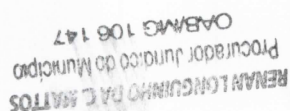 RENAN LONGUINHO DA C. MATTOS
Procurador Jurídico do Município
OAB/MG 106 147